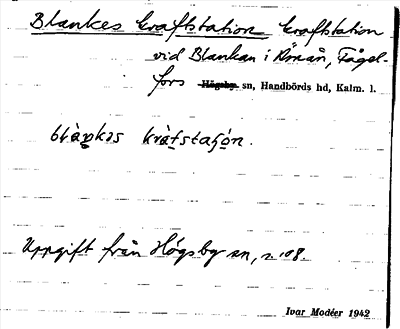 Blankes kraftstation kraftstation
vid Blankan i Emån, Fågel-
fors Högsby sn, Handbörds hd, Kalm. l.
blàŋkəs kràftstaʃón.
Uppgift från Högsby sn, s. 108.
Ivar Modéer 1942